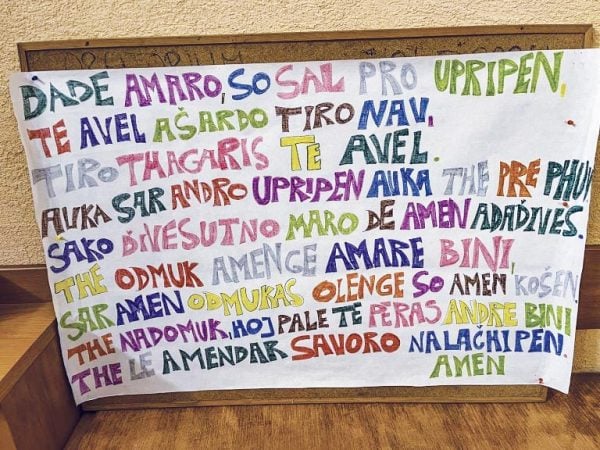 DADE AMARO, SO SAL PRO UPRIPEN,
TE AVEL AŠARDO TIRO NAV,
TIRO THAGARIS TE AVEL.
AUKA SAR ANDRO UPRIPEN AUKA THE PRE PHUV.
SAKO DIVESUTNO MARO DE AMEN ADADIVES.
THE ODMUK AMENGE AMARE BINI,
SAR AMEN ODMUKAS OLENGE SO AMEN KOŠEN
THE NADOMUK, HOJ PALE TE PERAS ANDRE BINI
THE LE AMENDAR SAVORO NALAČHIPEN.
AMEN